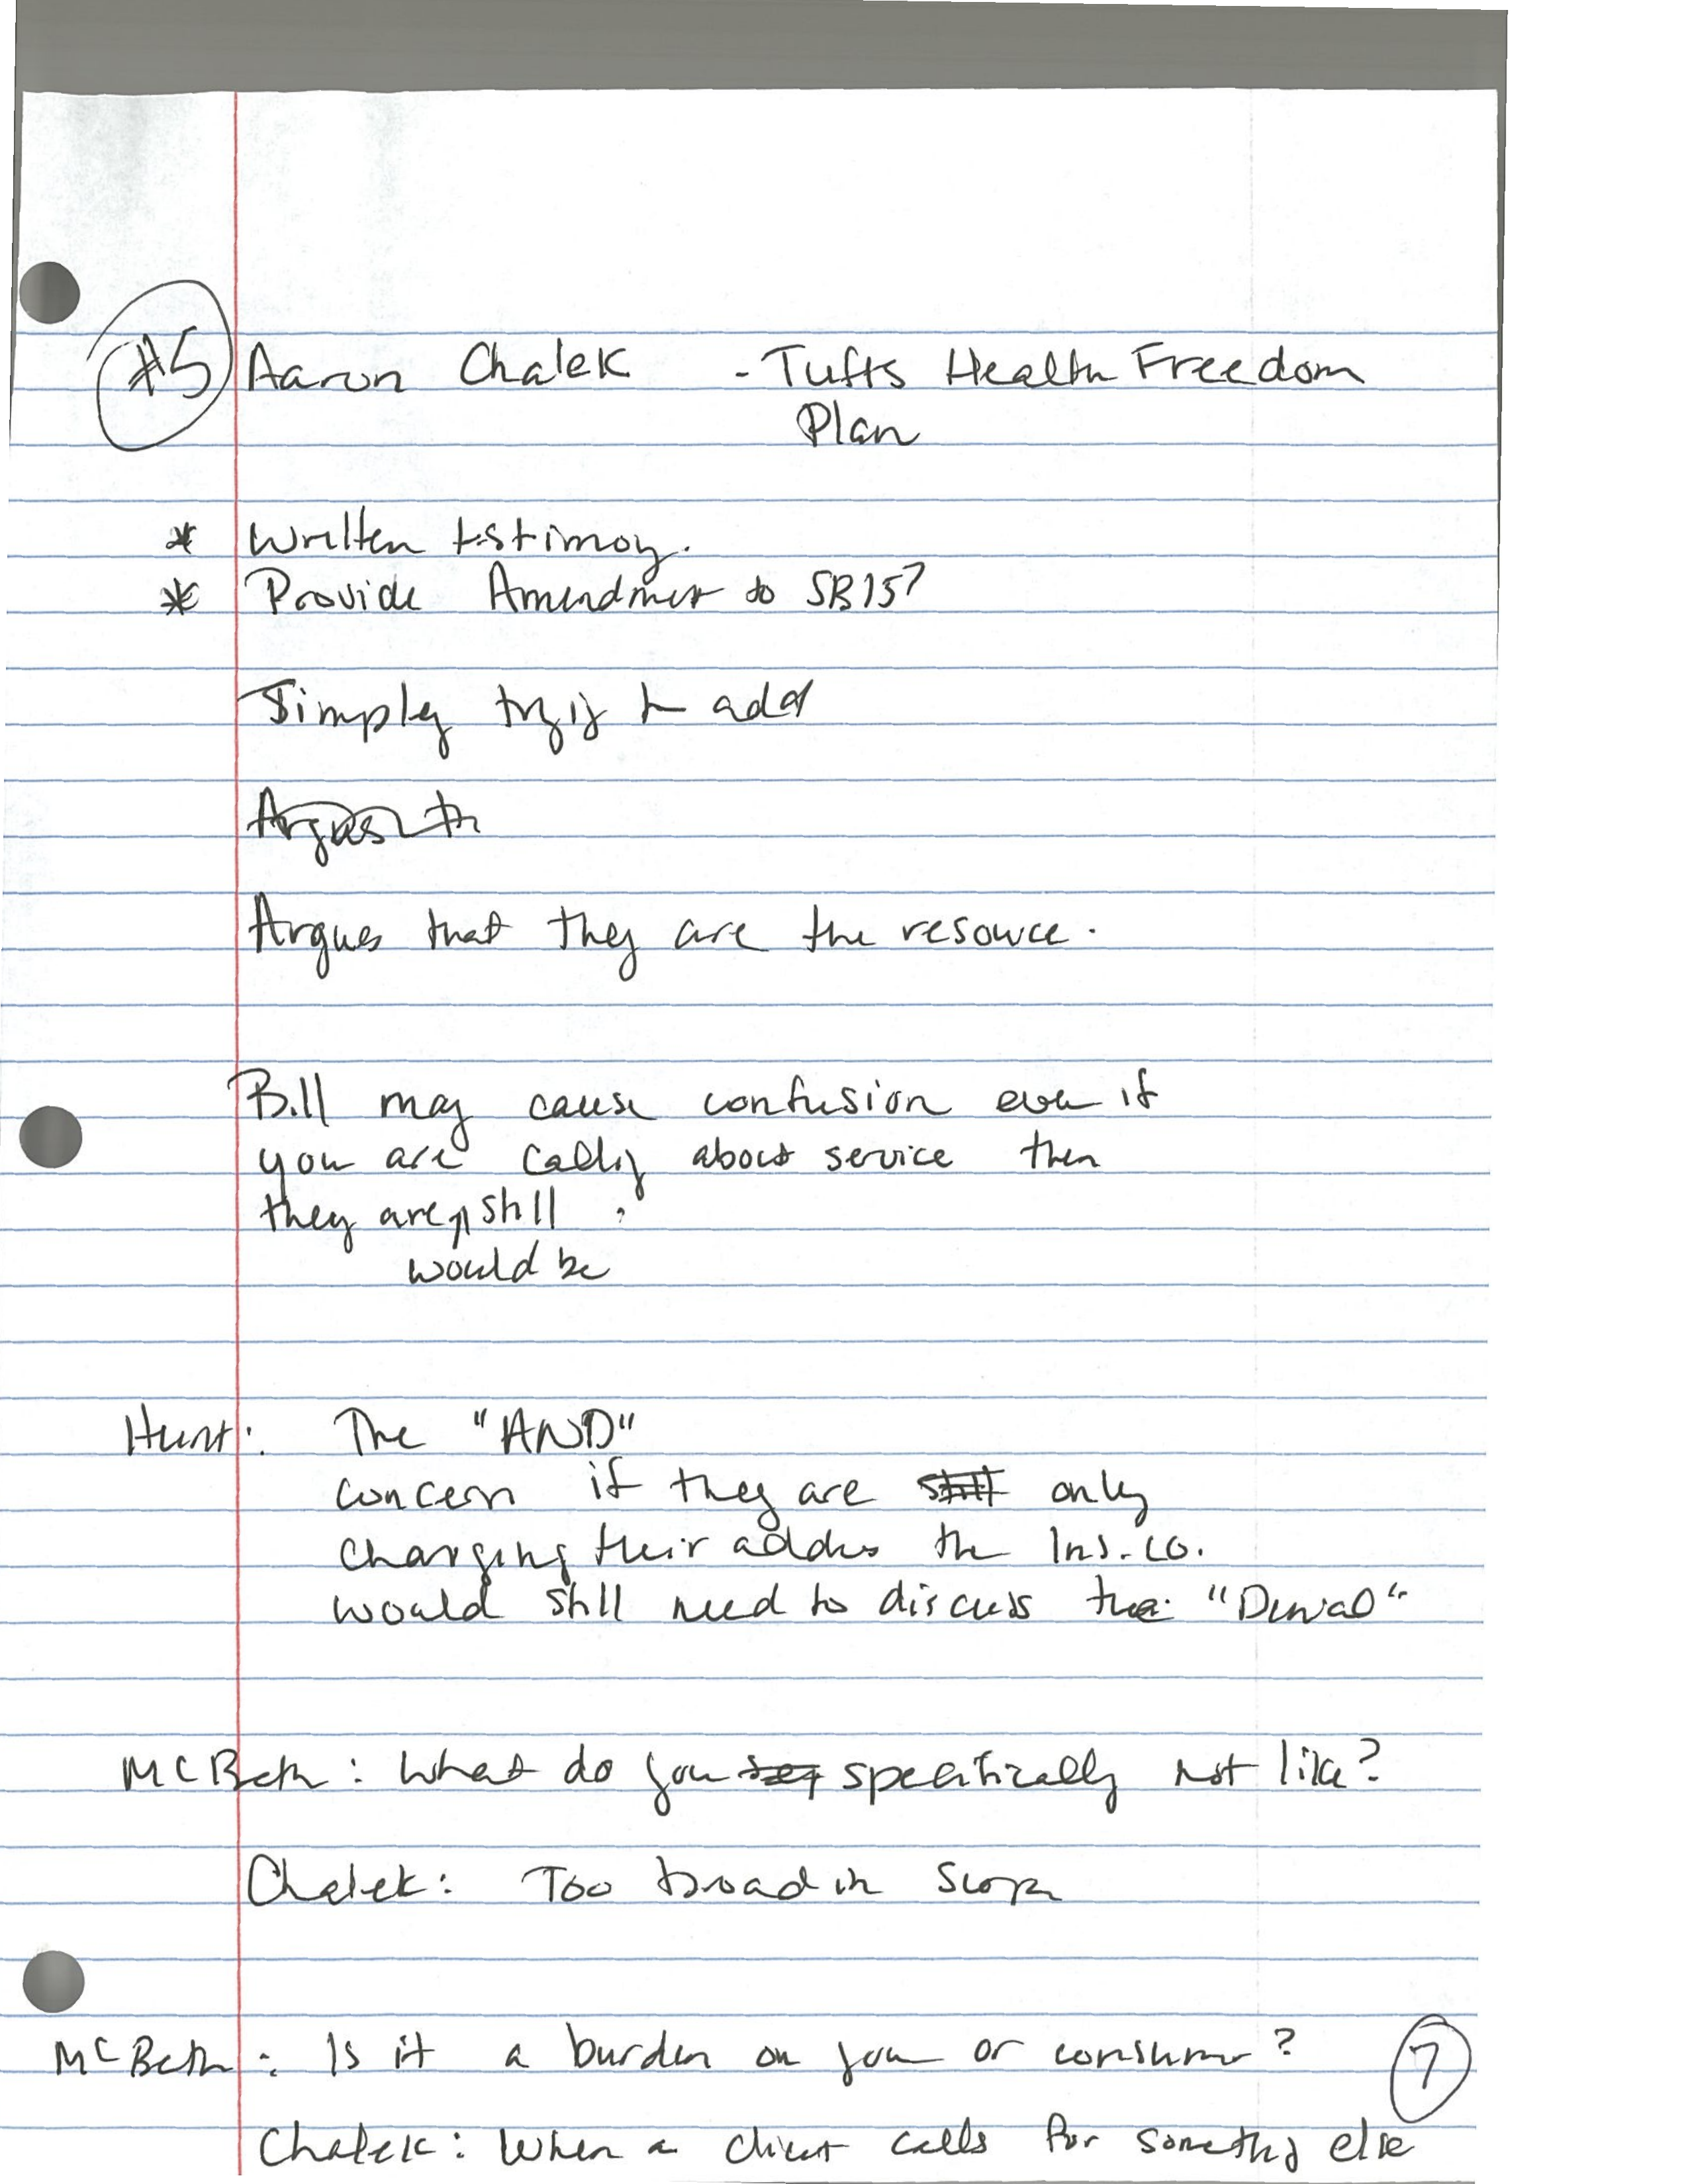 #5 Aaron Chalek - Tufts Health Freedom
Plan
* Written testimoy.
* Provide Amendment to SB157
Simply tryig to add
Argues th
Argues that they are the resource.
Bill may cause confusion even if
you are callig about service then
they are still ,
would be
Hunt: The "AND"
concern if they are still only
changing their addres the Ins. co.
would still need to discuss the "Denial"
McBeth: What do you say specifically not like?
Chalek: Too broad in scope
McBeth: Is it a burden on you or consumer?
7
Chalek: When a client calls for somethig else